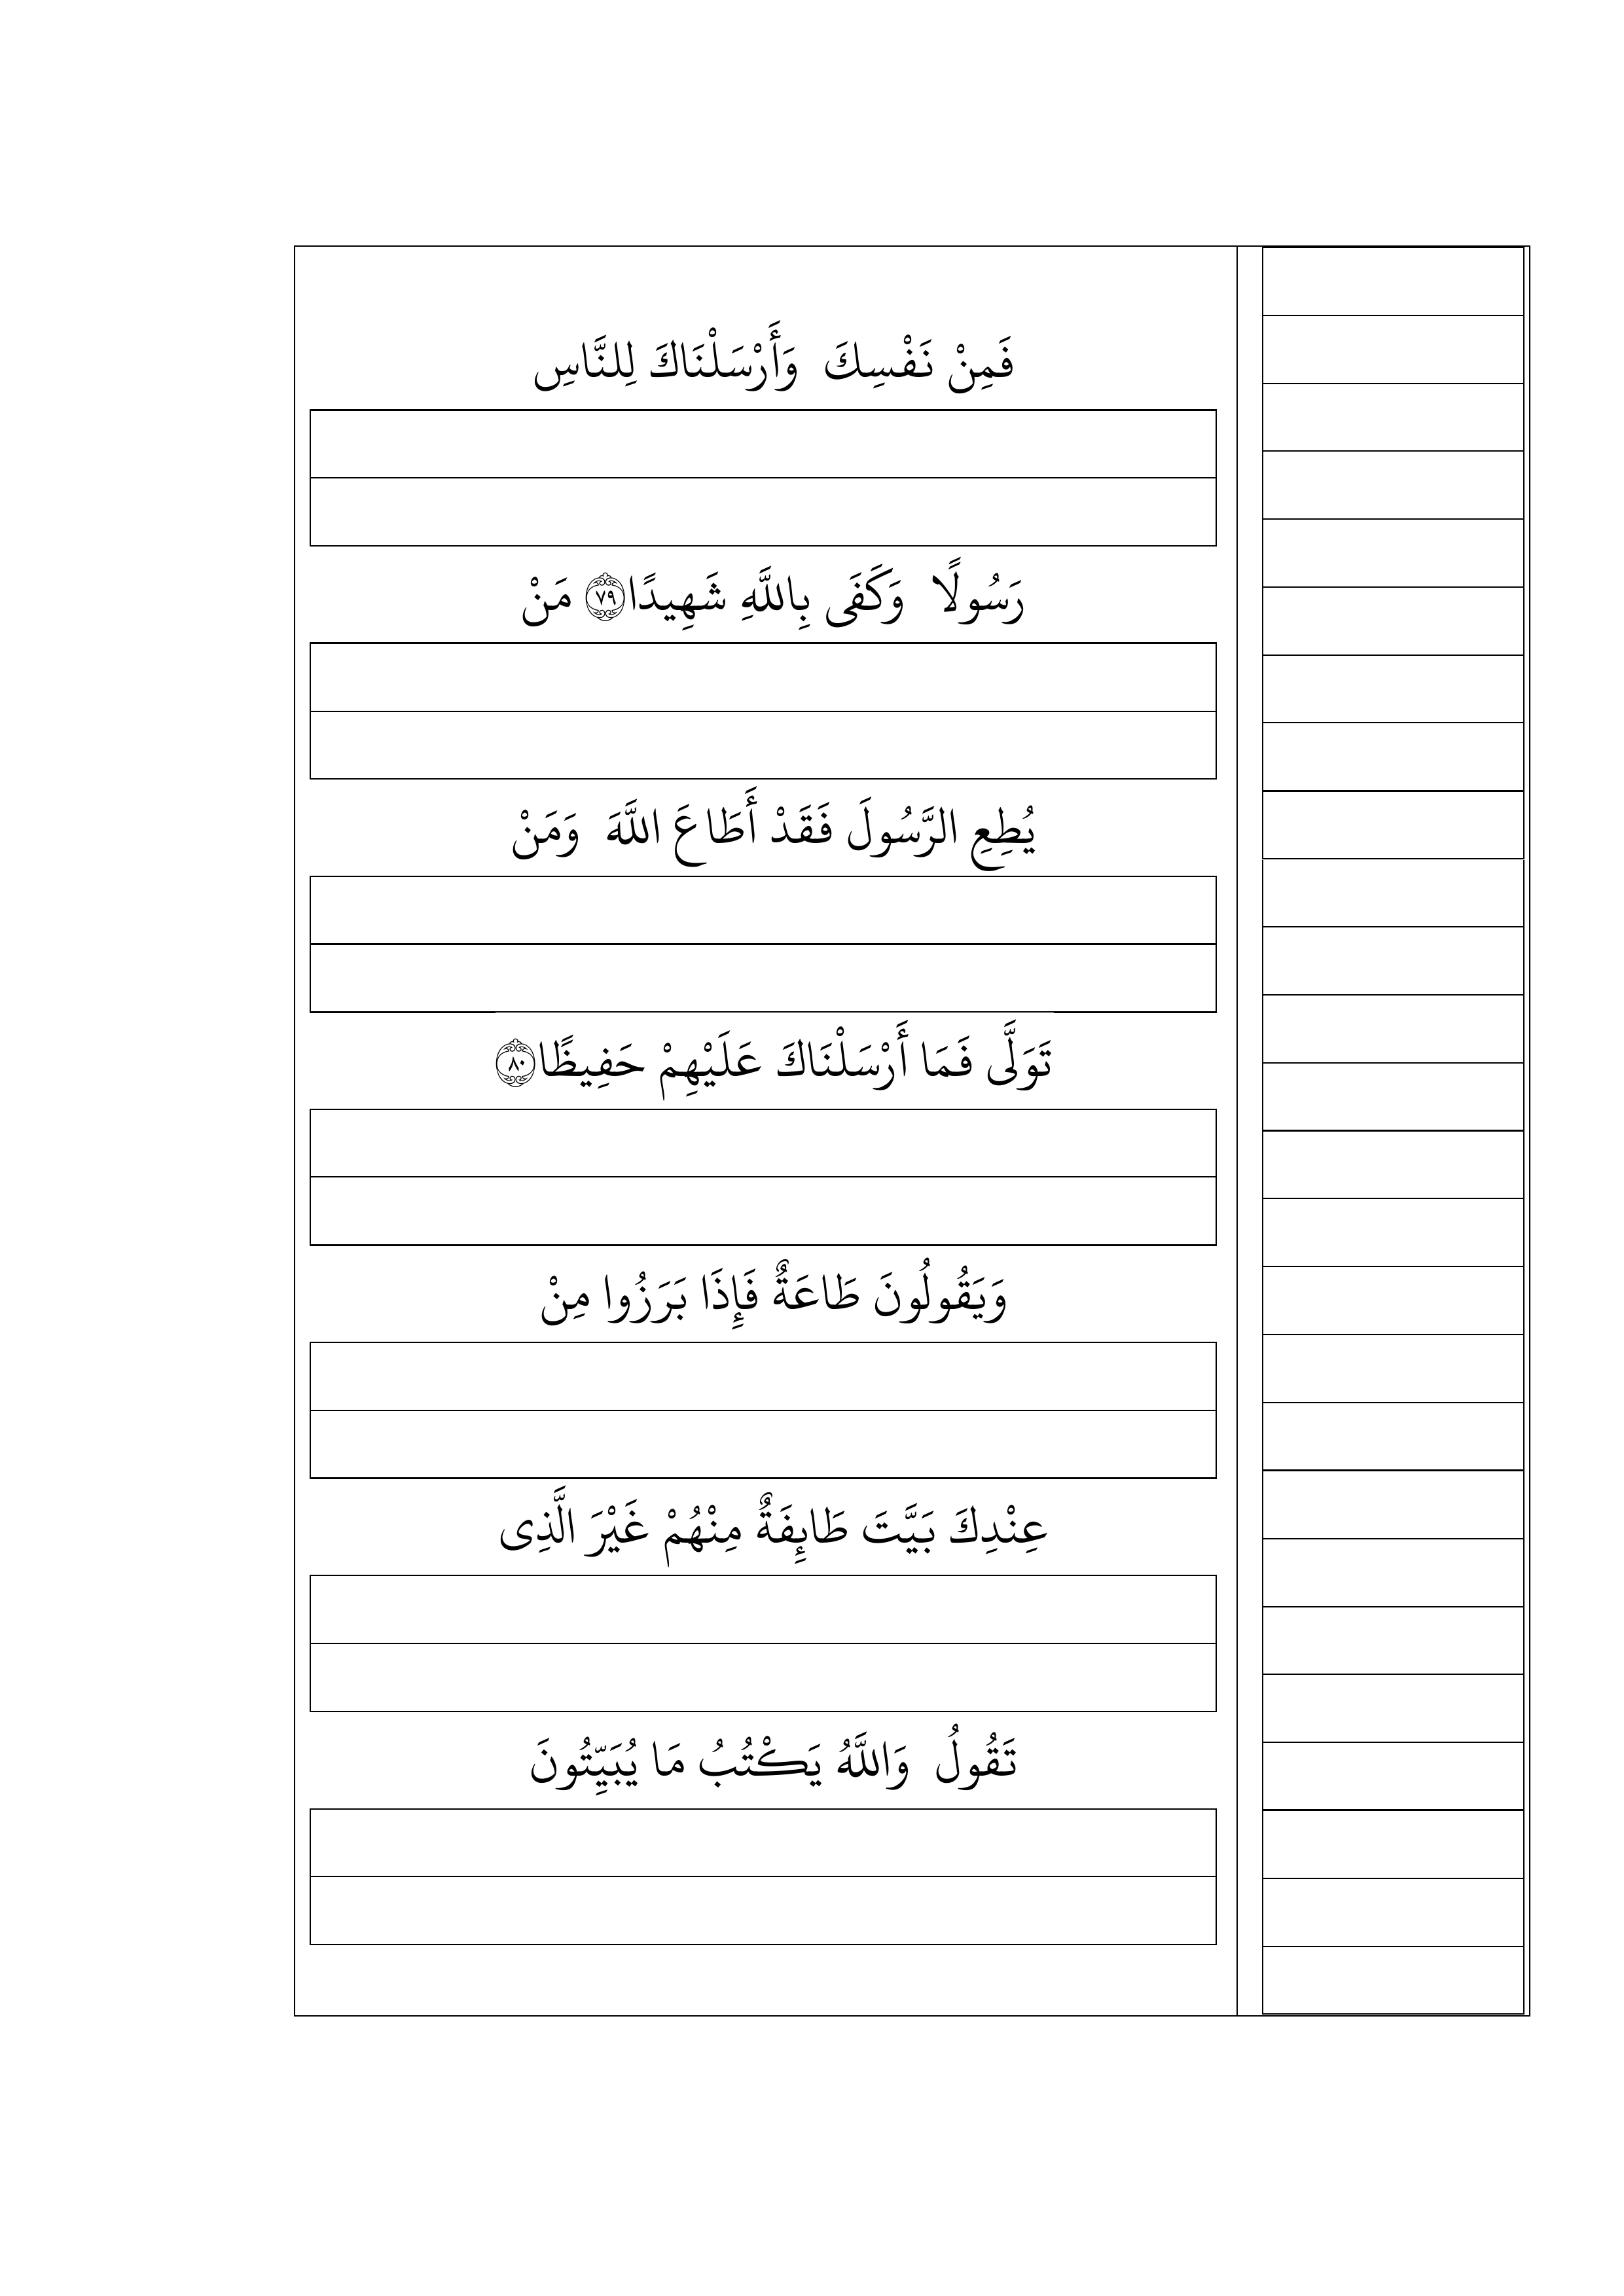 فَمِنْ نَفْسِكَ وَأَرْسَلْنَاكَ لِلنَّاسِ
رَسُولًا وَكَفَى بِاللَّهِ شَهِيدًا ﴿٧٩﴾ مَنْ
يُطِعِ الرَّسُولَ فَقَدْ أَطَاعَ اللَّهَ وَمَنْ
تَوَلَّى فَمَا أَرْسَلْنَاكَ عَلَيْهِمْ حَفِيظًا ﴿٨٠﴾
وَيَقُولُونَ طَاعَةٌ فَإِذَا بَرَزُوا مِنْ
عِنْدِكَ بَيَّتَ طَائِفَةٌ مِنْهُمْ غَيْرَ الَّذِى
تَقُولُ وَاللَّهُ يَكْتُبُ مَا يُبَيِّتُونَ